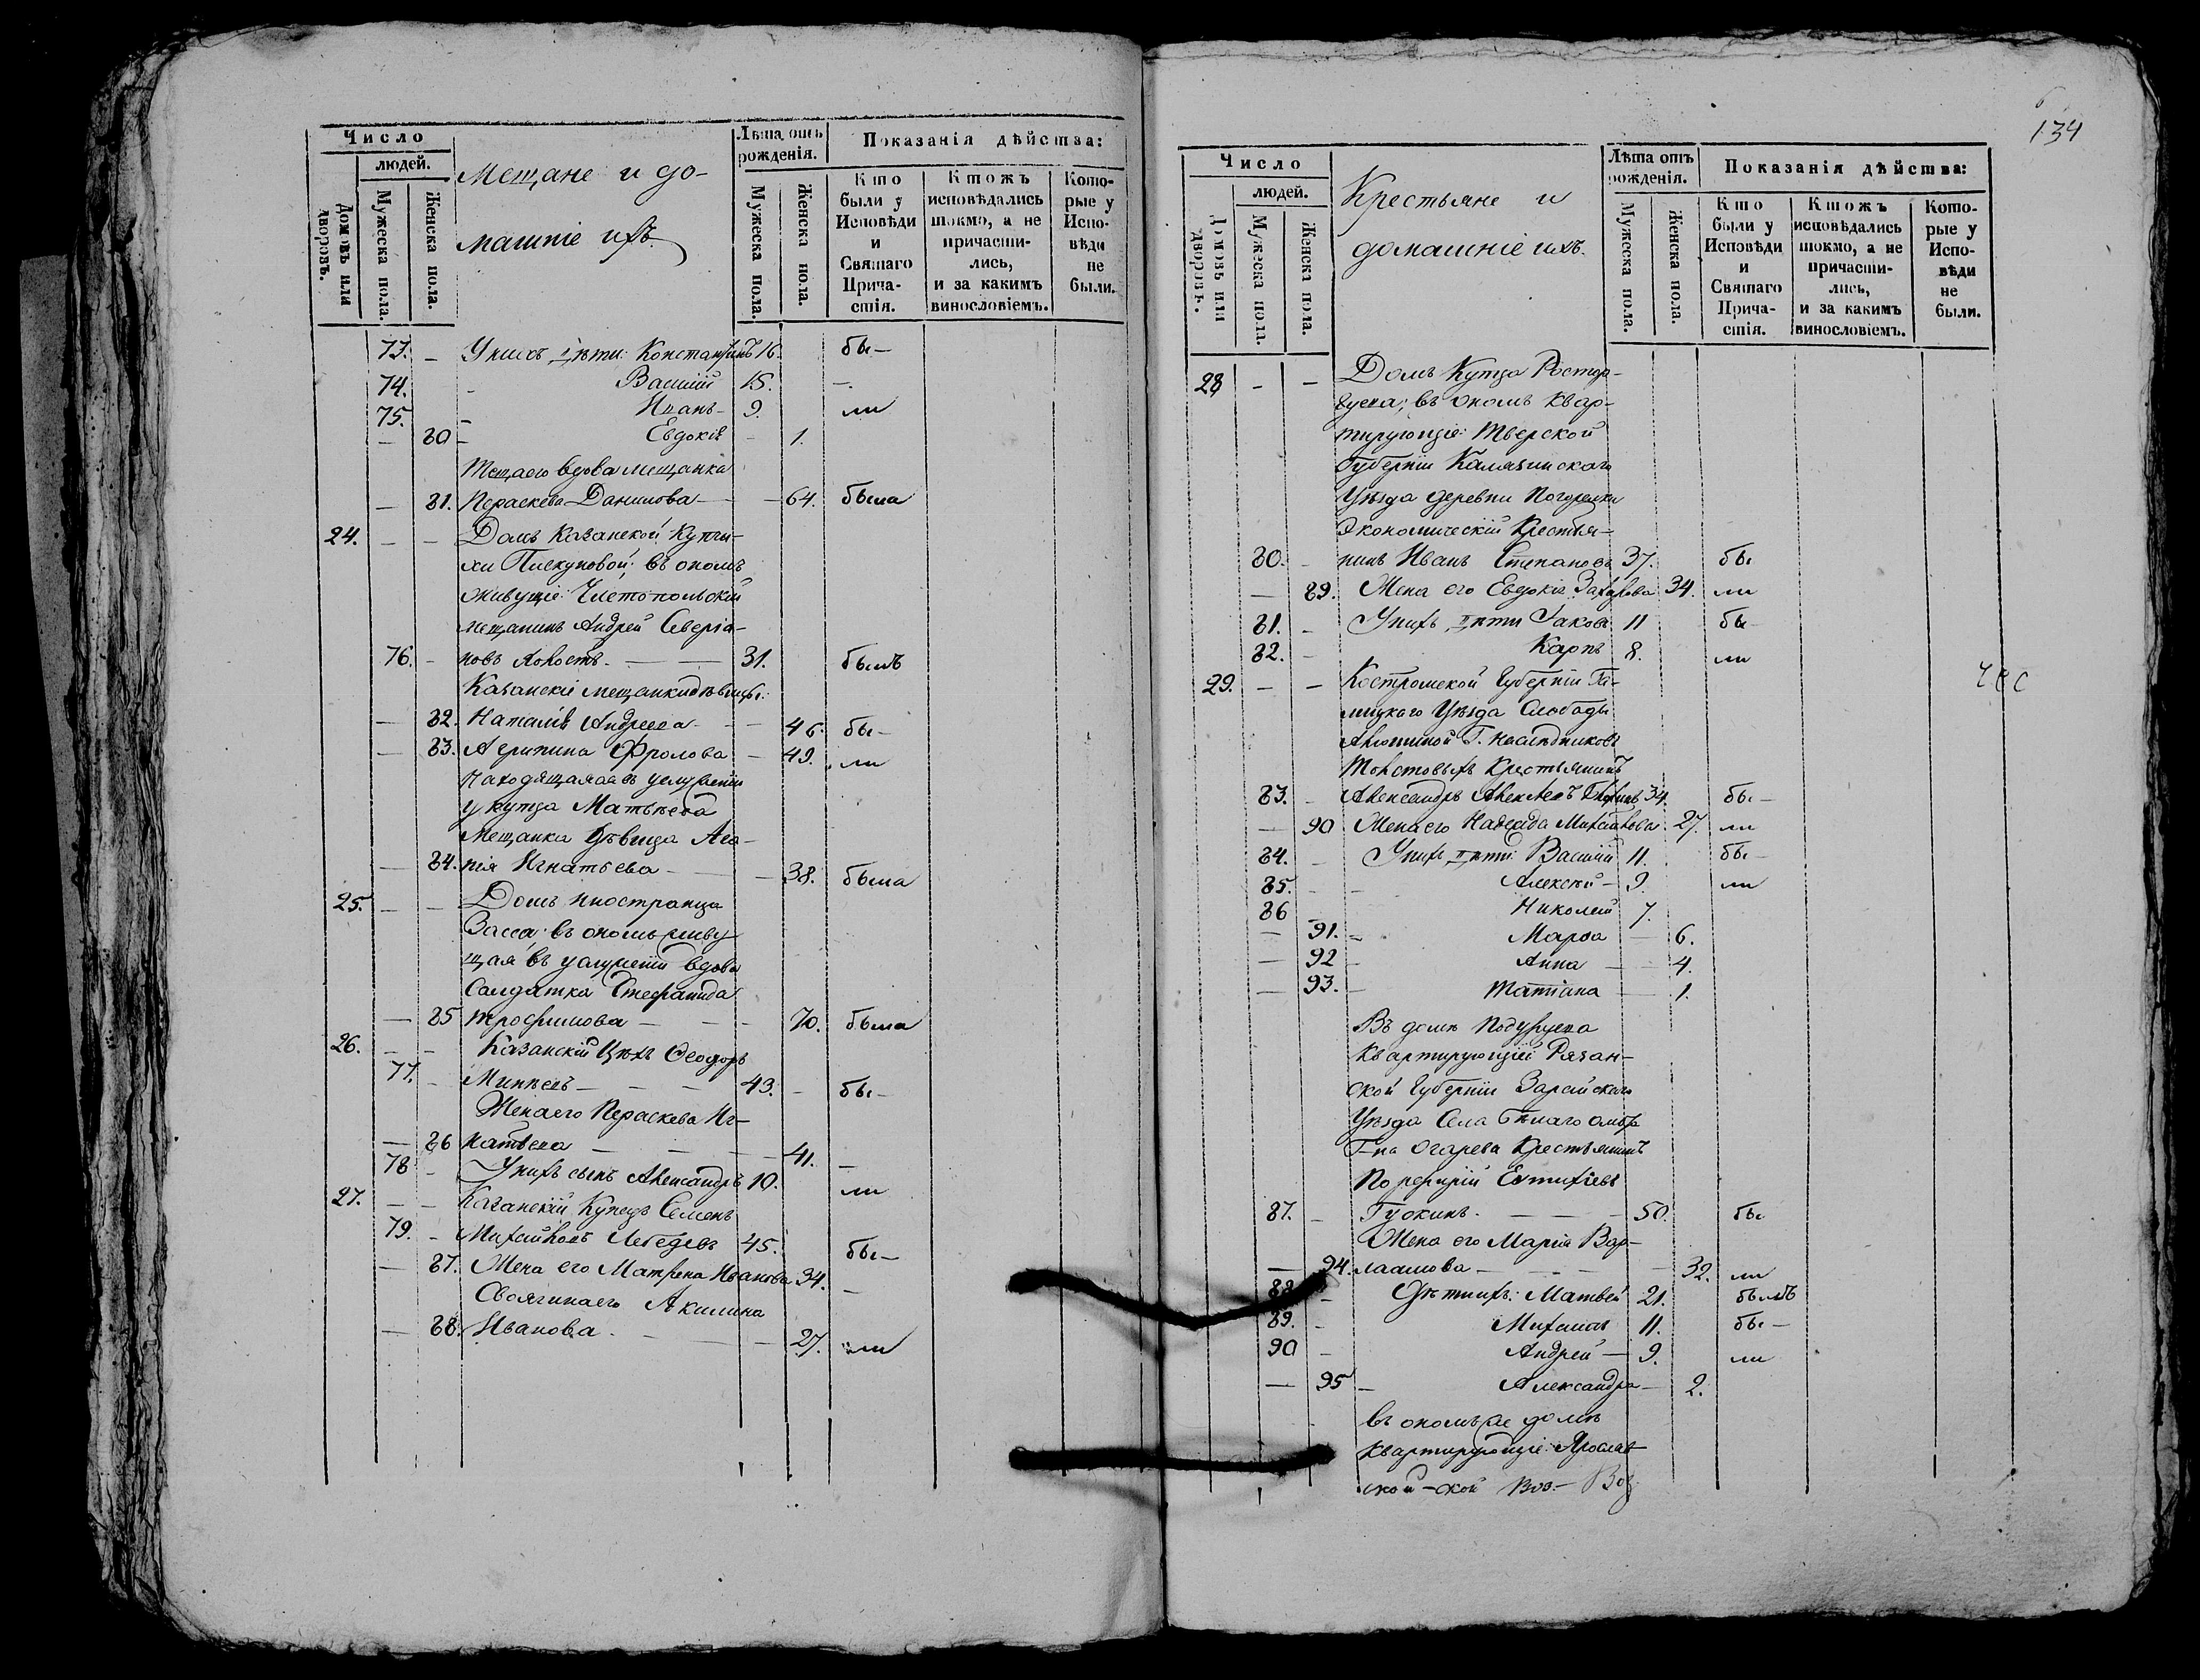 Число
людей.
Домовъ или дворовъ.
Мужеска пола.
Женска пола.
Мещане и до-
машніе ихъ.
Лѣта отъ рожденія.
Мужеска пола.
Женска пола.
Показанія дѣйства:
Кто были у Исповѣди и Святаго Прича-стія.
Ктожъ исповѣдались токмо, а не причасти-лись, и за какимъ винословіемъ.
Кото-рые у Испо-вѣди не были.
73. – У нихъ дѣти: Константинъ 16. бы–
74. – Василій 15. –
75. – Иванъ – 9. ли
– 80 – Евдокія – 1.
Теща его вдова мещанка
– 81. Параскева Данилова – – 64. была
24. – – Домъ Казанской Купчи-
хи Пискуновой: въ ономъ
живущіе: Чистопольскій
мещанинъ Андрей Северіа-
76. – новъ – – 31. былъ
Казанскіе мещанки дѣвицы:
– 82. Наталія Андреева – – 46. бы–
– 83. Агрипина Фролова – 49. ли
Находящаяся въ услуженіи
у купца Матвѣева
Мещанка дѣвица Ага-
– 84. пія Игнатьева – – 38. была
25. – – Домъ иностранца
Засса: въ ономъ живу
щая въ услуженіи вдова
Салдатка Стефанида
– 85 Трофимова – – – 70. была
26. – – Казанскій Цѣхъ Феодоръ
77. – – – – 43. – бы–
Жена его Параскева Иг-
– 86 натьева – – – – 41. –
78 – У нихъ сынъ Александръ 10. ли
27. – – Казанскій Купецъ Семенъ
79. – Михайловъ Лебедевъ 45. бы–
– 87. Жена его Матрена Иванова 34. –
Своячина его Акилина
– 88. Иванова – – – 27. ли
134
Число
людей.
Домовъ или дворовъ.
Мужеска пола.
Женска пола.
Крестьяне и
домашніе ихъ.
Лѣта отъ рожденія.
Мужеска пола.
Женска пола.
Показанія дѣйства:
Кто были у Исповѣди и Святаго Прича-стія.
Ктожъ исповѣдались токмо, а не причасти-лись, и за какимъ винословіемъ.
Кото-рые у Испо-вѣди не были.
28 – – Домъ Купца Растор-
гуева; въ ономъ квар-
тирующіе: Тверской
Губерніи Калязинскаго
Уѣзда деревни Погорелки
Экономическій Крестья-
80. – нинъ Иванъ Степановъ 37. бы
– 89. Жена его Евдокія Захарова 34. ли
81. – У нихъ дѣти Іаковъ 11 бы–
82. – Карпъ 8. ли
29. – – Костромской Губерніи Га-
лицкаго Уѣзда Слободы
Г. Наслѣдниковъ
Толстовыхъ Крестьянинъ
83. – Александръ Алексѣевъ 34. бы–
– 90 Жена его Надежда Михайлова 27. ли
84. – У нихъ дѣти: Василій 11. бы–
85. – – Алексѣй – 9. ли
86 – Николай 7.
– 91. – Марфа – 6.
– 92 – Анна – – 4.
– 93. – Татіана – 1.
Въ домѣ Подуруева
Квартирующіе Рязан-
ской Губерніи Зарайскаго
Уѣзда Села Бѣлаго омута
Г-на Огарева Крестьянинъ
Порфирій Евтихіевъ
87. – Гуокинъ – – – 50. бы
Жена его Марія Вар-
– 94. лаамова – – – – 32. ли
88. – Дѣти ихъ: Матвей 21. былъ
89. – Михаилъ 11. бы–
90 – Андрей – 9. ли
– 95 – Александра – 2.
въ ономъ же домѣ
квартирующіе: Ярослав-
ской –ской